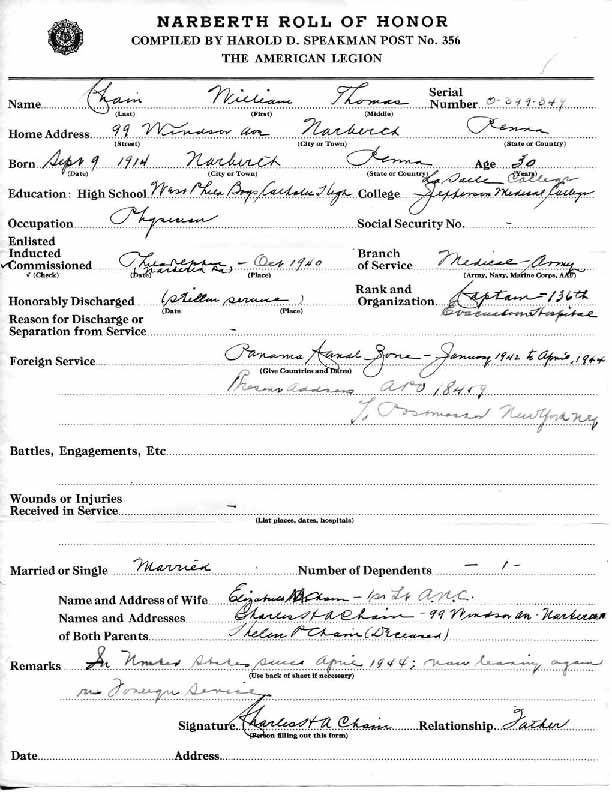 NARBERTH ROLL OF HONOR
COMPILED BY HAROLD D. SPEAKMAN POST No. 356
THE AMERICAN LEGION
Name Chain William Thomas Serial Number O-399-347
(Last) (First) (Middle)
Home Address 99 Windsor av Narberth Penna
(Street) (City or Town) (State or Country)
Born Sept 9 1914 Narberth Penna Age 30
(Date) (City or Town) (State or Country) (Years)
La Salle College
Education: High School West Phila Boys Catholic High College Jefferson Medical College
Occupation Physician Social Security No. -
Enlisted
Inducted
✓Commissioned - Oct 1940 Branch of Service Medical - Army
√ (Check) (Date) (Place) (Army, Navy, Marine Corps, AAF)
Honorably Discharged (still in service) Rank and Organization Captain - 136th
(Date (Place) Evacuation Hospital
Reason for Discharge or
Separation from Service -
Foreign Service Panama Canal Zone - January 1942 to April, 1944
(Give Countries and Dates)
Present address APO 18409
℅ Postmaster New York NY
Battles, Engagements, Etc
Wounds or Injuries
Received in Service -
(List places, dates, hospitals)
Married or Single Married Number of Dependents - 1 -
Name and Address of Wife Elizabeth Chain - 1st Lt A.N.C.
Names and Addresses Charles H A Chain - 99 Windsor av. Narberth
of Both Parents Helen P Chain (Deceased)
Remarks In United States since April 1944; now leaving again
(Use back of sheet if necessary)
on Foreign Service
Signature Charles H A Chain Relationship Father
(Person filling out this form)
Date Address